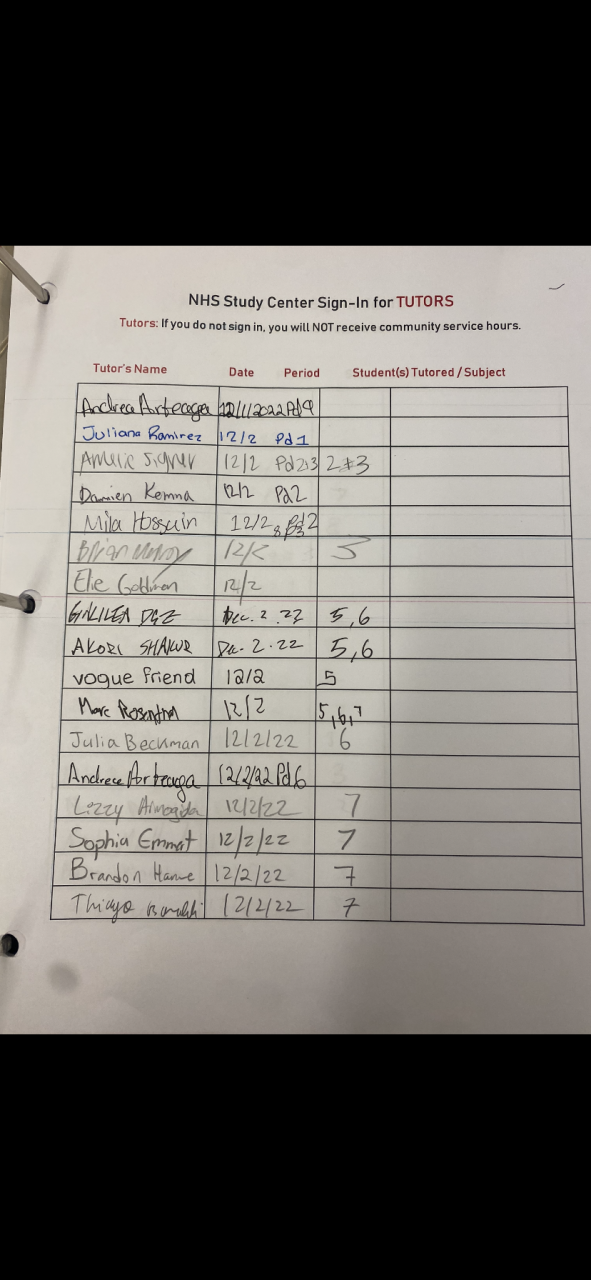 NHS Study Center Sign-In for TUTORS
Tutors: If you do not sign in, you will NOT receive community service hours.
Tutor's Name Date Period Student(s) Tutored / Subject
Andrea Arteaga 12/1/2022 Pd 9
Juliana Ramirez 12/2 Pd 1
12/2 Pd 2+3 2+3
Damien Kemna 12/2 Pd2
Mila Hossain 12/2 Pd2 & P3
Brian 12/2 3
Elie Goldman 12/2
Dec. 2. 22 5,6
AKORI SHAKUR Dec. 2. 22 5,6
vogue friend 12/2 5
Marc Rosenthal 12/2 5,6,7
Julia Beckman 12/2/22 6
Andrea Arteaga 12/2/22 Pd 6
Lizzy 12/2/22 7
Sophia Emmat 12/2/22 7
Brandon 12/2/22 7
Thiago 12/2/22 7